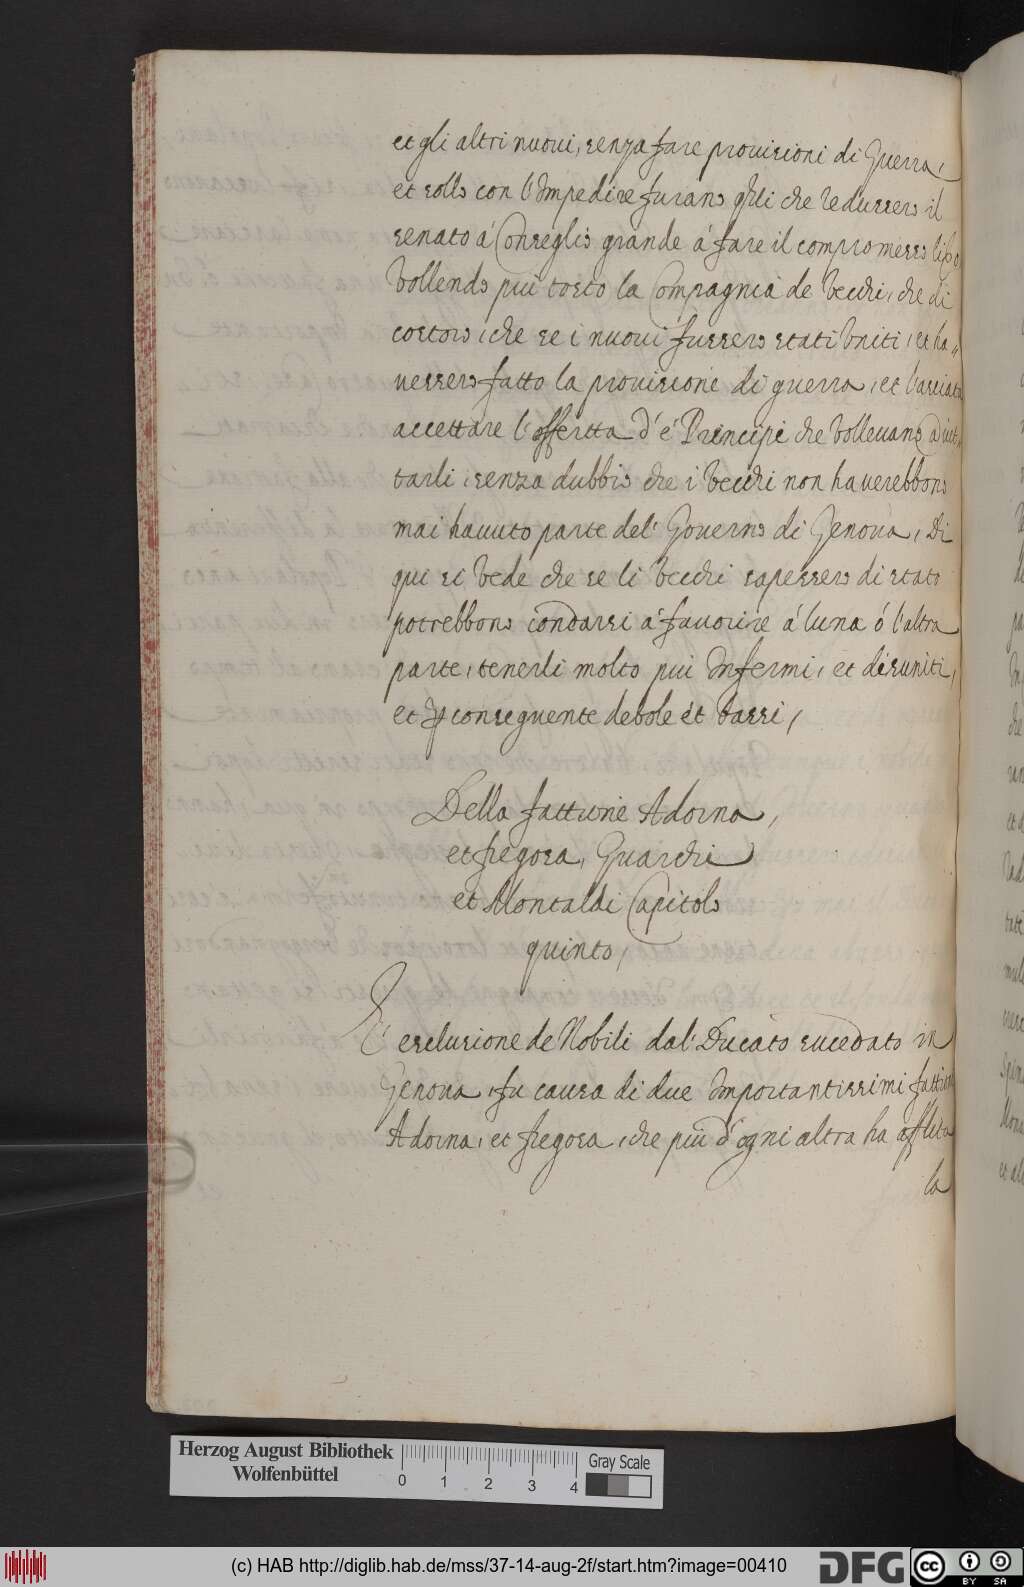 et gli altri nuoui, senza fare prouisioni di Guerra,
et solo con l'Impedire furano qlli che redussero il
senato á Conseglio grande á fare il compromesso
Vollendo piu tosto la Compagnia de Vecchi, che di
costoro, che se i nuoui fussero stati Vniti, et ha„
uessero fatto la prouisione di guerra, et
accettare l'offertta d'é Principi che Volleuano
tarli, senza dubbio che i Vecchi non haverebbono
mai hauuto parte del' Gouerno di Genoua, Di
qui si Vede che se li Vecchi sapessero di stato
potrebbono condarsi á fauorire á luna ó l'altra
parte, tenerli molto piu Infermi, et disuniti,
et p conseguente debole et bassi,
Della fattione Adorna,
et fregosa, Guarchi
et Montaldi Capitolo
quinto,
L' esclusione de Nobili dal' Ducato sucedato in
Genoua, fu causa di due Importantissimi fattioni
Adorna, et fregosa, che piu d'ogni altra ha afflita
la
Herzog August Bibliothek
Wolfenbüttel
0 1 2 3 4
Gray Scale
(c) HAB http://diglib.hab.de/mss/37-14-aug-2f/start.htm?image=00410
DFG
cc BY SA